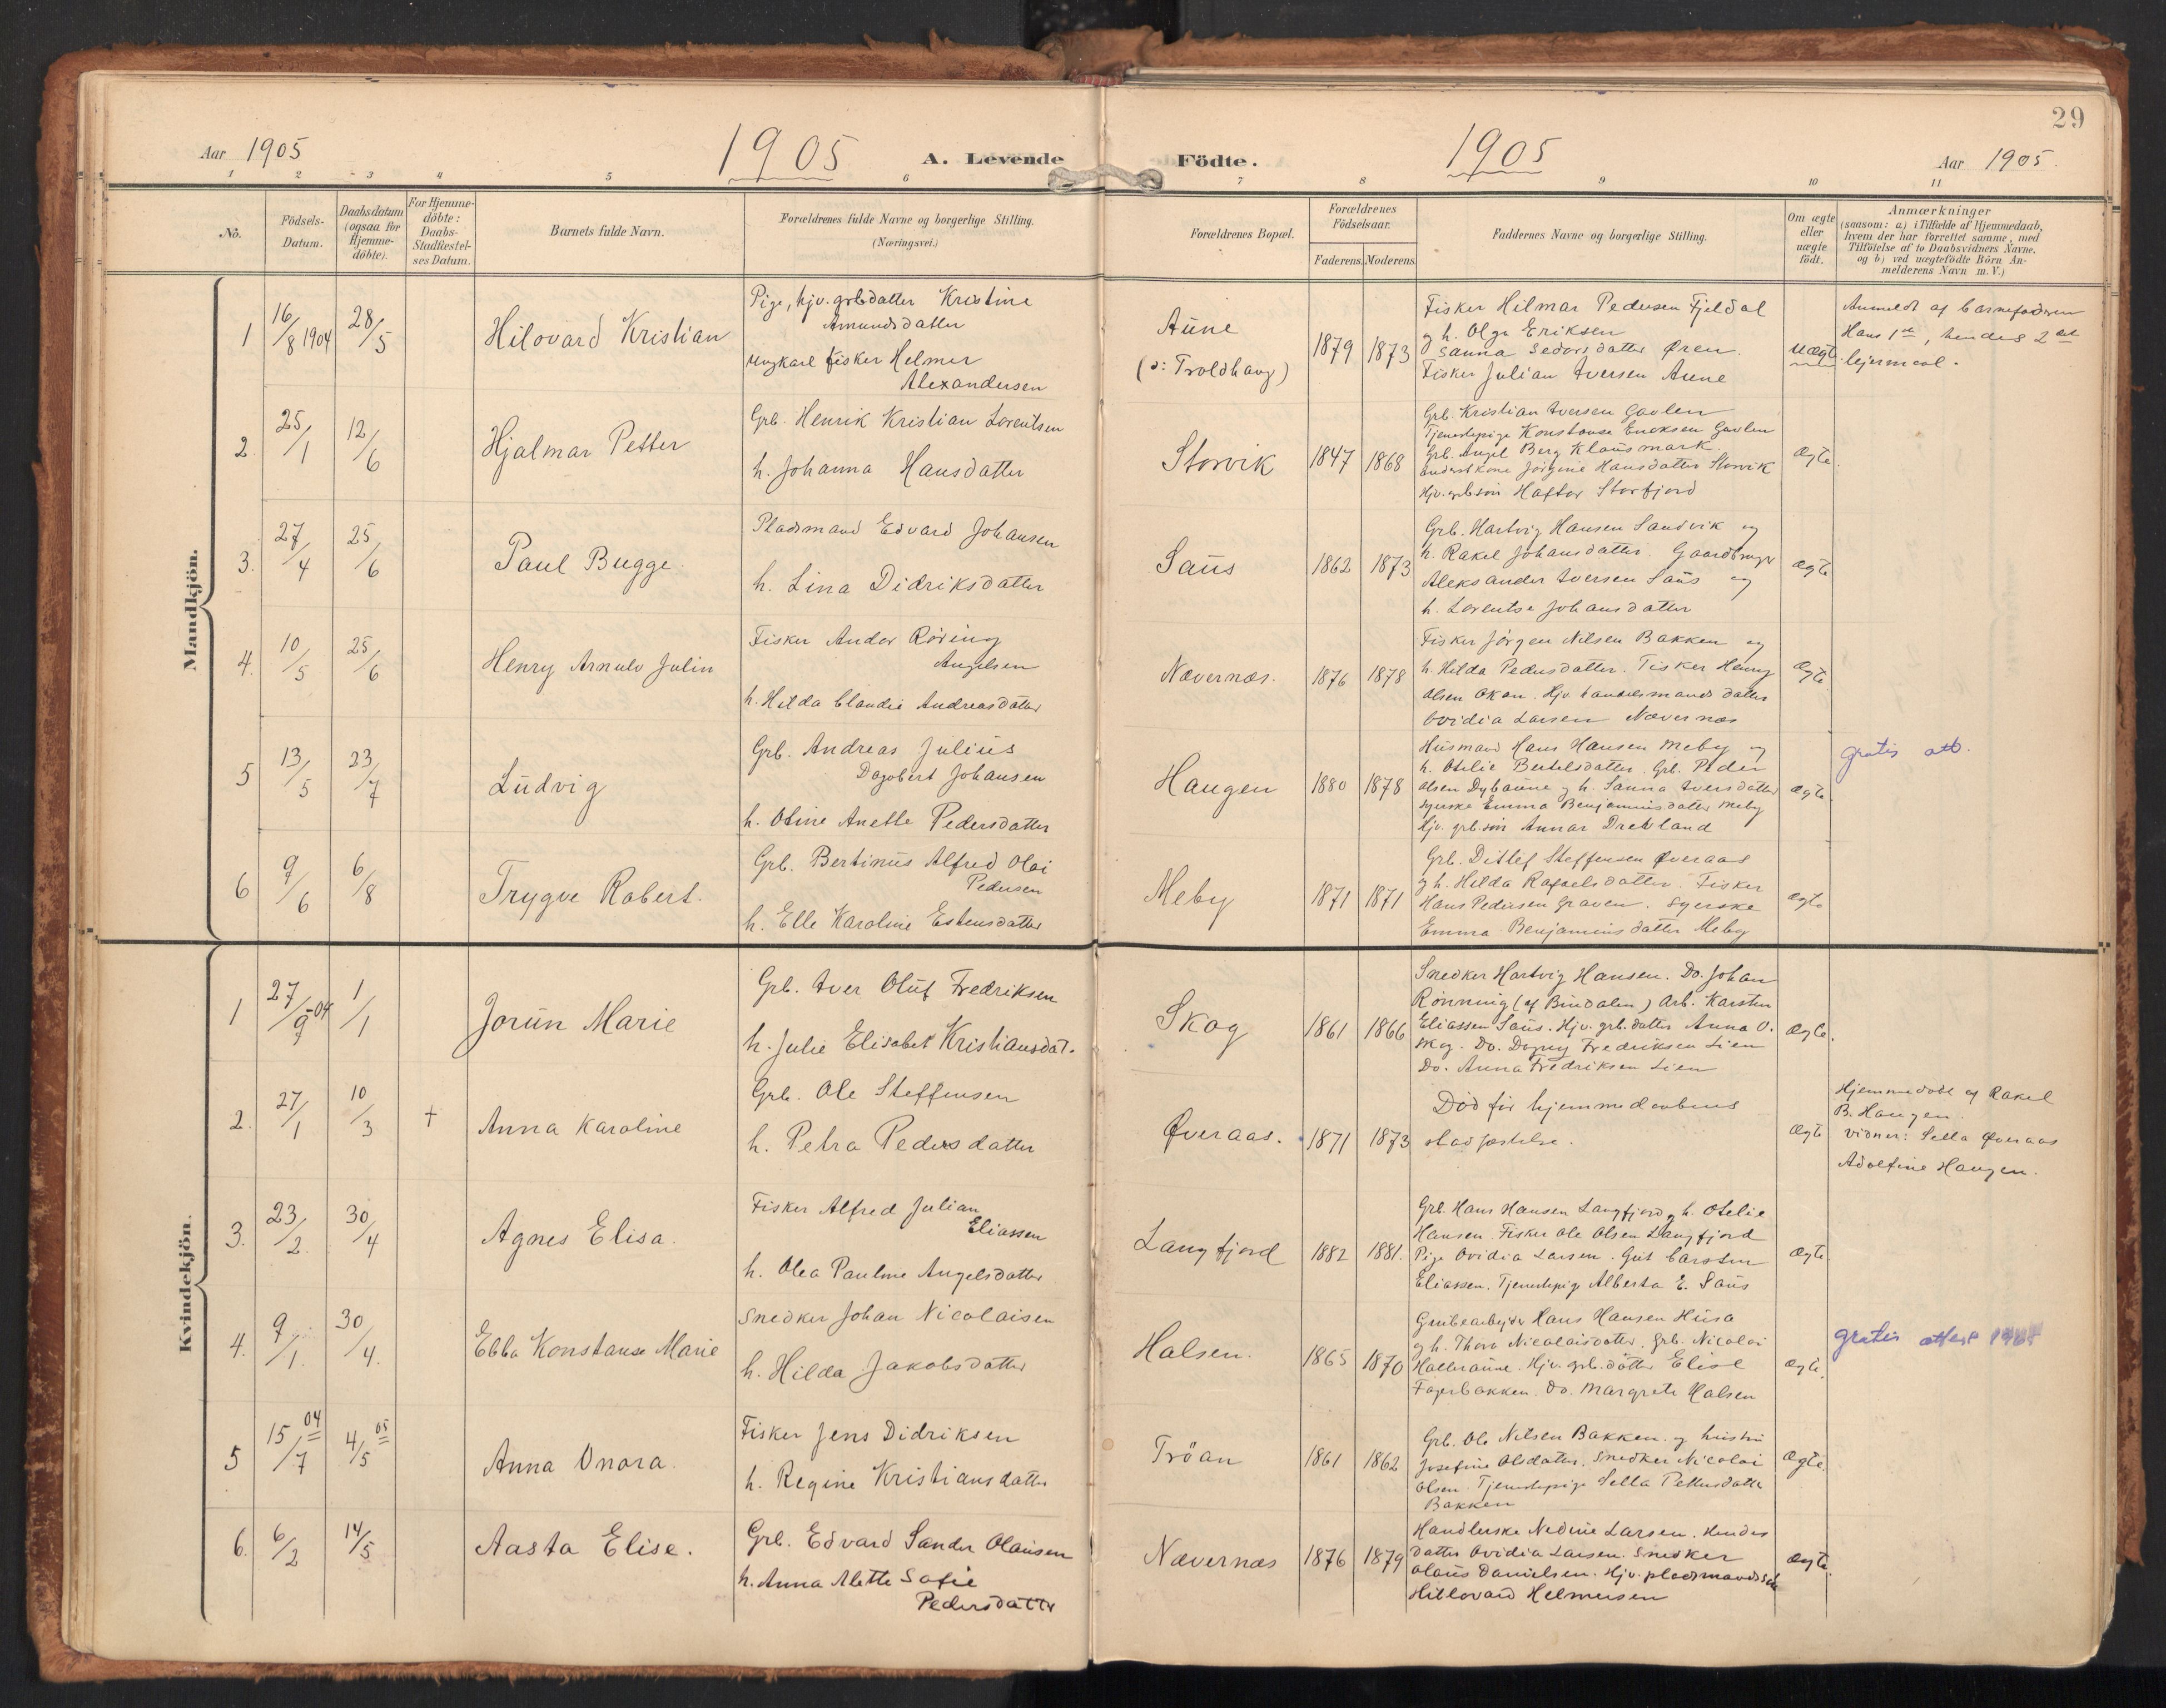 29
Aar 1905 1905 A. Levende Födte. 1905 Aar 1905.
1 2 3 4 5 6 7 8 9 10 11
No. Födsels-Datum. Daabsdatum (ogsaa for Hjemme-döbte). For Hjemme-döbte: Daabs-Stadfæstel-ses Datum. Barnets fulde Navn. Forældrenes fulde Navne og borgerlige Stilling. (Næringsvei.) Forældrenes Bopæl. Forældrenes Födselsaar. Faderens. Moderens. Faddernes Navne og borgerlige Stilling. Om ægte eller uægte födt. Anmærkninger (saasom: a) i Tilfælde af Hjemmedaab, hvem der har forrettet samme, med Tilföielse af to Daabsvidners Navne, og b) ved uægtefödte Börn An-melderens Navn m. V.)
Mandkjön.
1 16/8 1904 28/5 Hilovard Kristian
Pige, hjv. grbdatter Kristine
Amundsdatter
Ungkarl fisker Helmer
Alexandersen
Aune
(ɔ: Troldhaug)
1879 1873
Fisker Hilmar Pedersen Fjeldal
og h. Olga Eriksen
Sanna Sedorsdatter Øren.
Fisker Julian Iversen Aune
Uægte
Anmeldt af barnefaderen
Hans 1ste, hendes 2det
lejermaal.
2. 25/1 12/6 Hjalmar Petter
Grb. Henrik Kristian Lorentsen
h. Johanna Hansdatter
Storvik 1847 1868
Grb. Kristian Iversen Gavlen
Tjenestepige Konstanse Ericksen Gavlen
Grb. Angel Berg Klausmark
Jörgine Hansdatter Storvik
Hjv. grb.sön Haftor Storfjord
Ægte.
3. 27/4 25/6 Paul Bugge.
Pladsmand Edvard Johansen
h. Lina Didriksdatter
Saus 1862 1873
Grb. Hartvig Hansen Sandvik og
h. Rakel Johansdatter. Gaardbruger
Aleksander Iversen Saus og
h. Lorentse Johansdatter
Ægte
4. 10/5 25/6 Henry Arnulv Julin
Fisker Andor Röring
Angelsen
h. Hilda Claudie Andreasdatter
Nævernæs. 1876 1878
Fisker Jörgen Nilsen Bakken og
h. Hilda Pedersdatter. Fisker Henry
Olsen Okan. Hjv. handelsmands datter
Ovidia Larsen Nævernæs
Ægte
5 13/5 23/7 Ludvig
Grb. Andreas Julius
Dagobert Johansen
h. Oline Anette Pedersdatter
Haugen 1880 1878
Husmand Hans Hansen Meby og
h. Otelie Bertelsdatter. Grb. Peder
Olsen Dybaune og h. Sanna Iversdatter
Syerske Emma Benjaminsdatter Meby
Hjv. grb.sön Annar Drevland
Ægte
gratis att.
6 9/6 6/8 Trygve Robert.
Grb. Bertinus Alfred Olai
Pedersen
h. Elle Karoline Estensdatter
Meby 1871 1871
Grb. Ditlef Steffensen Øveraas
og h. Hilda Rafaelsdatter. Fisker
Hans Pedersen Graven. Syerske
Emma Benjaminsdatter Meby
Ægte
Kvindekjön.
1 27/9-04 1/1 Jorun Marie
Grb. Iver Oluf Fredriksen
h. Julie Elisabet Kristiansdat.
Skog 1861 1866
Snedker Hartvig Hansen. Do. Johan
Rönning (af Bindalen) Arb. Karsten
Eliassen Saus. Hjv. grb.datter Anna O.
Skog. Do. Dagny Fredriksen Lien
Do. Anna Fredriksen Lien
Ægte.
2. 27/1 10/3 + Anna Karoline
Grb. Ole Steffensen
h. Petra Pedersdatter
Øveraas. 1871 1873
Död för hjemmedaabens
stadfæstelse.
Ægte
Hjemmedöbt af Rakel
B. Haugen.
Vidner: Sella Øveraas
Adolfine Haugen.
3. 23/2. 30/4 Agnes Elisa.
Fisker Alfred Julian
Eliassen
h. Olea Pauline Angelsdatter
Langfjord 1882 1881.
Grb. Hans Hansen Langfjord og h. Otelie
Hansen. Fisker Ole Olsen Langfjord
Pige Ovidia Larsen. Gut Carsten
Eliassen. Tjenestepige Alberta E. Saus
Ægte.
4. 9/1. 30/4. Ebba Konstanse Marie
Snedker Johan Nicolaisen
h. Hilda Jakobsdatter
Halsen. 1865 1870
Grubearbejder Hans Hansen Husa
og h. Thora Nicolaisdatter. Grb. Nicolai
Halleraune. Hjv. grb.datter Elise
Fagerbakken. Do. Margrete Halsen
Ægte.
gratis attest
5 15/7 04 4/5 05 Anna Onora.
Fisker Jens Didriksen
h. Regine Kristiansdatter
Tröan 1861 1862
Grb. Ole Nilsen Bakken og hustru
Josefine Olsdatter. Snedker Nicolai
Olsen. Tjenestepige Sella Pettersdatter
Bakken
Ægte.
6. 6/2 14/5 Aasta Elise.
Grb. Edvard Sander Olausen
h. Anna Alette Sofie
Pedersdatter
Nævernæs 1876 1879
Handlerske Nedine Larsen. Hendes
datter Ovidia Larsen. Snedker
Olaus Danielsen. Hjv. pladsmands
Hiblovard Helmersen
Ægte.